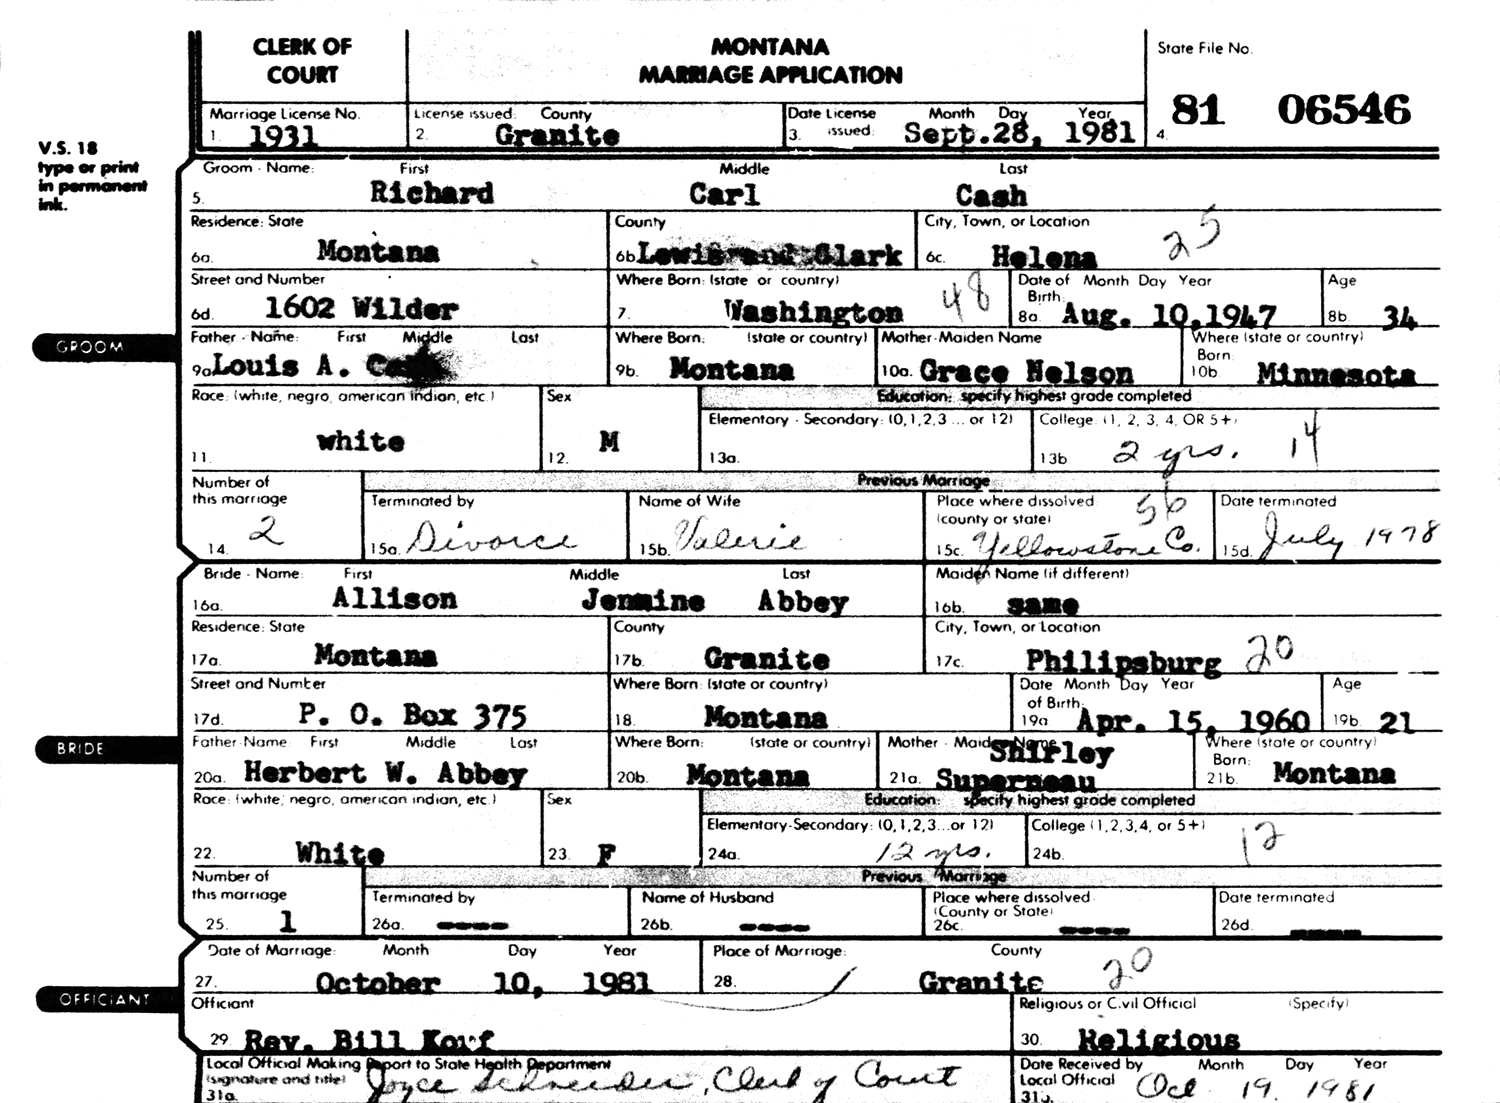 CLERK OF COURT
MONTANA MARRIAGE APPLICATION
State File No.
4. 81 06546
Marriage License No.
1. 1931
License issued: County
2. Granite
Date License issued: Month Day Year
3. Sept.28, 1981
V.S. 18
type or print
in permanent
ink.
Groom - Name: First Middle Last
5. Richard Carl Cash
Residence: State County City, Town, or Location
6a. Montana 6b Lewis and Clark 6c. Helena 25
Street and Number Where Born: (state or country) Date of Birth: Month Day Year Age
6d. 1602 Wilder 7. Washington 48 8a. Aug. 10,1947 8b 34
GROOM
Father - Name: First Middle Last Where Born: (state or country) Mother-Maiden Name Where (state or country) Born:
9a Louis A. 9b. Montana 10a. Grace Nelson 10b. Minnesota
Race: (white, negro, american indian, etc.) Sex Education: specify highest grade completed
Elementary - Secondary: (0,1,2,3 ... or 12) College: (1, 2, 3, 4, OR 5+)
11. white 12. M 13a. 13b 2 yrs. 14
Number of this marriage Previous Marriage
Terminated by Name of Wife Place where dissolved (county or state) 56 Date terminated
14. 2 15a. Divorce 15b. Valerie 15c. Yellowstone Co. 15d. July 1978
Bride - Name: First Middle Last Maiden Name (if different)
16a. Allison Jenmine Abbey 16b. same
Residence: State County City, Town, or Location
17a. Montana 17b. Granite 17c. Philipsburg 20
Street and Number Where Born: (state or country) Date of Birth: Month Day Year Age
17d. P. O. Box 375 18. Montana 19a Apr. 15, 1960 19b. 21
BRIDE
Father-Name: First Middle Last Where Born: (state or country) Mother - Maiden Name Where (state or country) Born:
20a. Herbert W. Abbey 20b. Montana 21a. Shirley Superneau 21b. Montana
Race: (white, negro, american indian, etc.) Sex Education: specify highest grade completed
Elementary-Secondary: (0,1,2,3...or 12) College (1,2,3,4, or 5+)
22. White 23. F 24a. 12 yrs. 24b. 12
Number of this marriage Previous Marriage
Terminated by Name of Husband Place where dissolved (County or State) Date terminated
25. 1 26a. ---- 26b. ---- 26c. ---- 26d. ----
Date of Marriage: Month Day Year Place of Marriage: County
27. October 10, 1981 28. Granite 20
OFFICIANT
Officiant Religious or Civil Official (Specify)
29. Rev. Bill 30. Religious
Local Official Making Report to State Health Department Date Received by Local Official Month Day Year
(signature and title)
31a. Joyce Schneider, Clerk of Court 31b. Oct 19, 1981